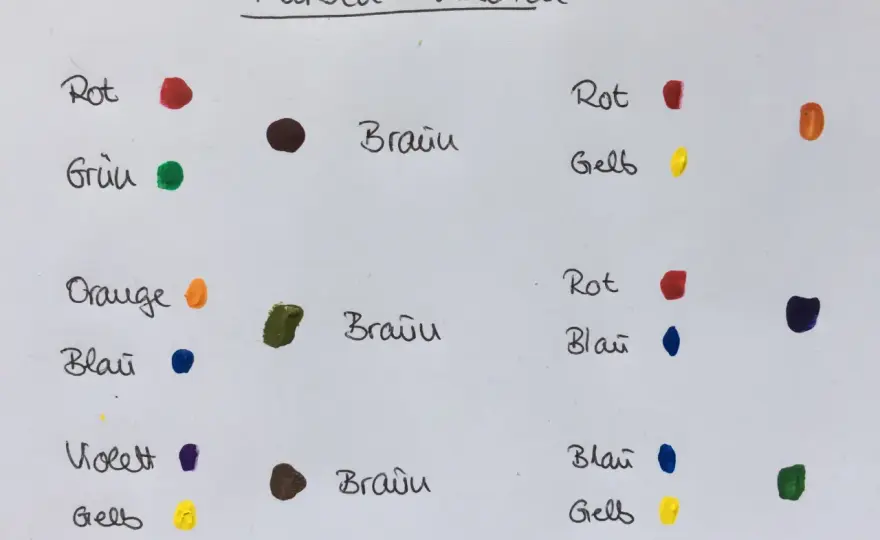 Rot
Grün
Braun
Orange
Blau
Braun
Violett
Gelb
Braun
Rot
Gelb
Rot
Blau
Blau
Gelb